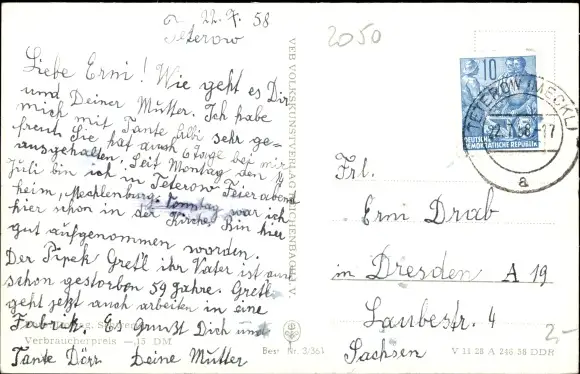 22.7.58
Teterow
Liebe Erni! Wie geht es Dir
und Deiner Mutter. Ich habe
mich mit Tante sehr ge-
freut. Sie hat auch 6 Tage bei mir
ausgehalten. Seit Montag den
Juli bin ich in Teterow Feierabend
heim, Mecklenburg. Sonntag war ich
hier schon in der Kirche. Bin hier
gut aufgenommen worden.
Der Pipek Gretl ihr Vater ist auch
schon gestorben 59 Jahre. Gretl
geht jetzt auch arbeiten in eine
Fabrik. Es grüßt Dich und
Tante Dörr. Deine Mutter
Verbraucherpreis —.15 DM
Best. Nr. 3/361
VEB VOLKSKUNSTVERLAG REICHENBACH I. V.
2050
10
DEUTSCHE
DEMOKRATISCHE REPUBLIK
TETEROW (MECKL)
22.7.58-17
a
Frl.
Erni Drab
in Dresden A 19
Laubestr. 4
Sachsen
2.-
V 11 28 A 246 58 DDR